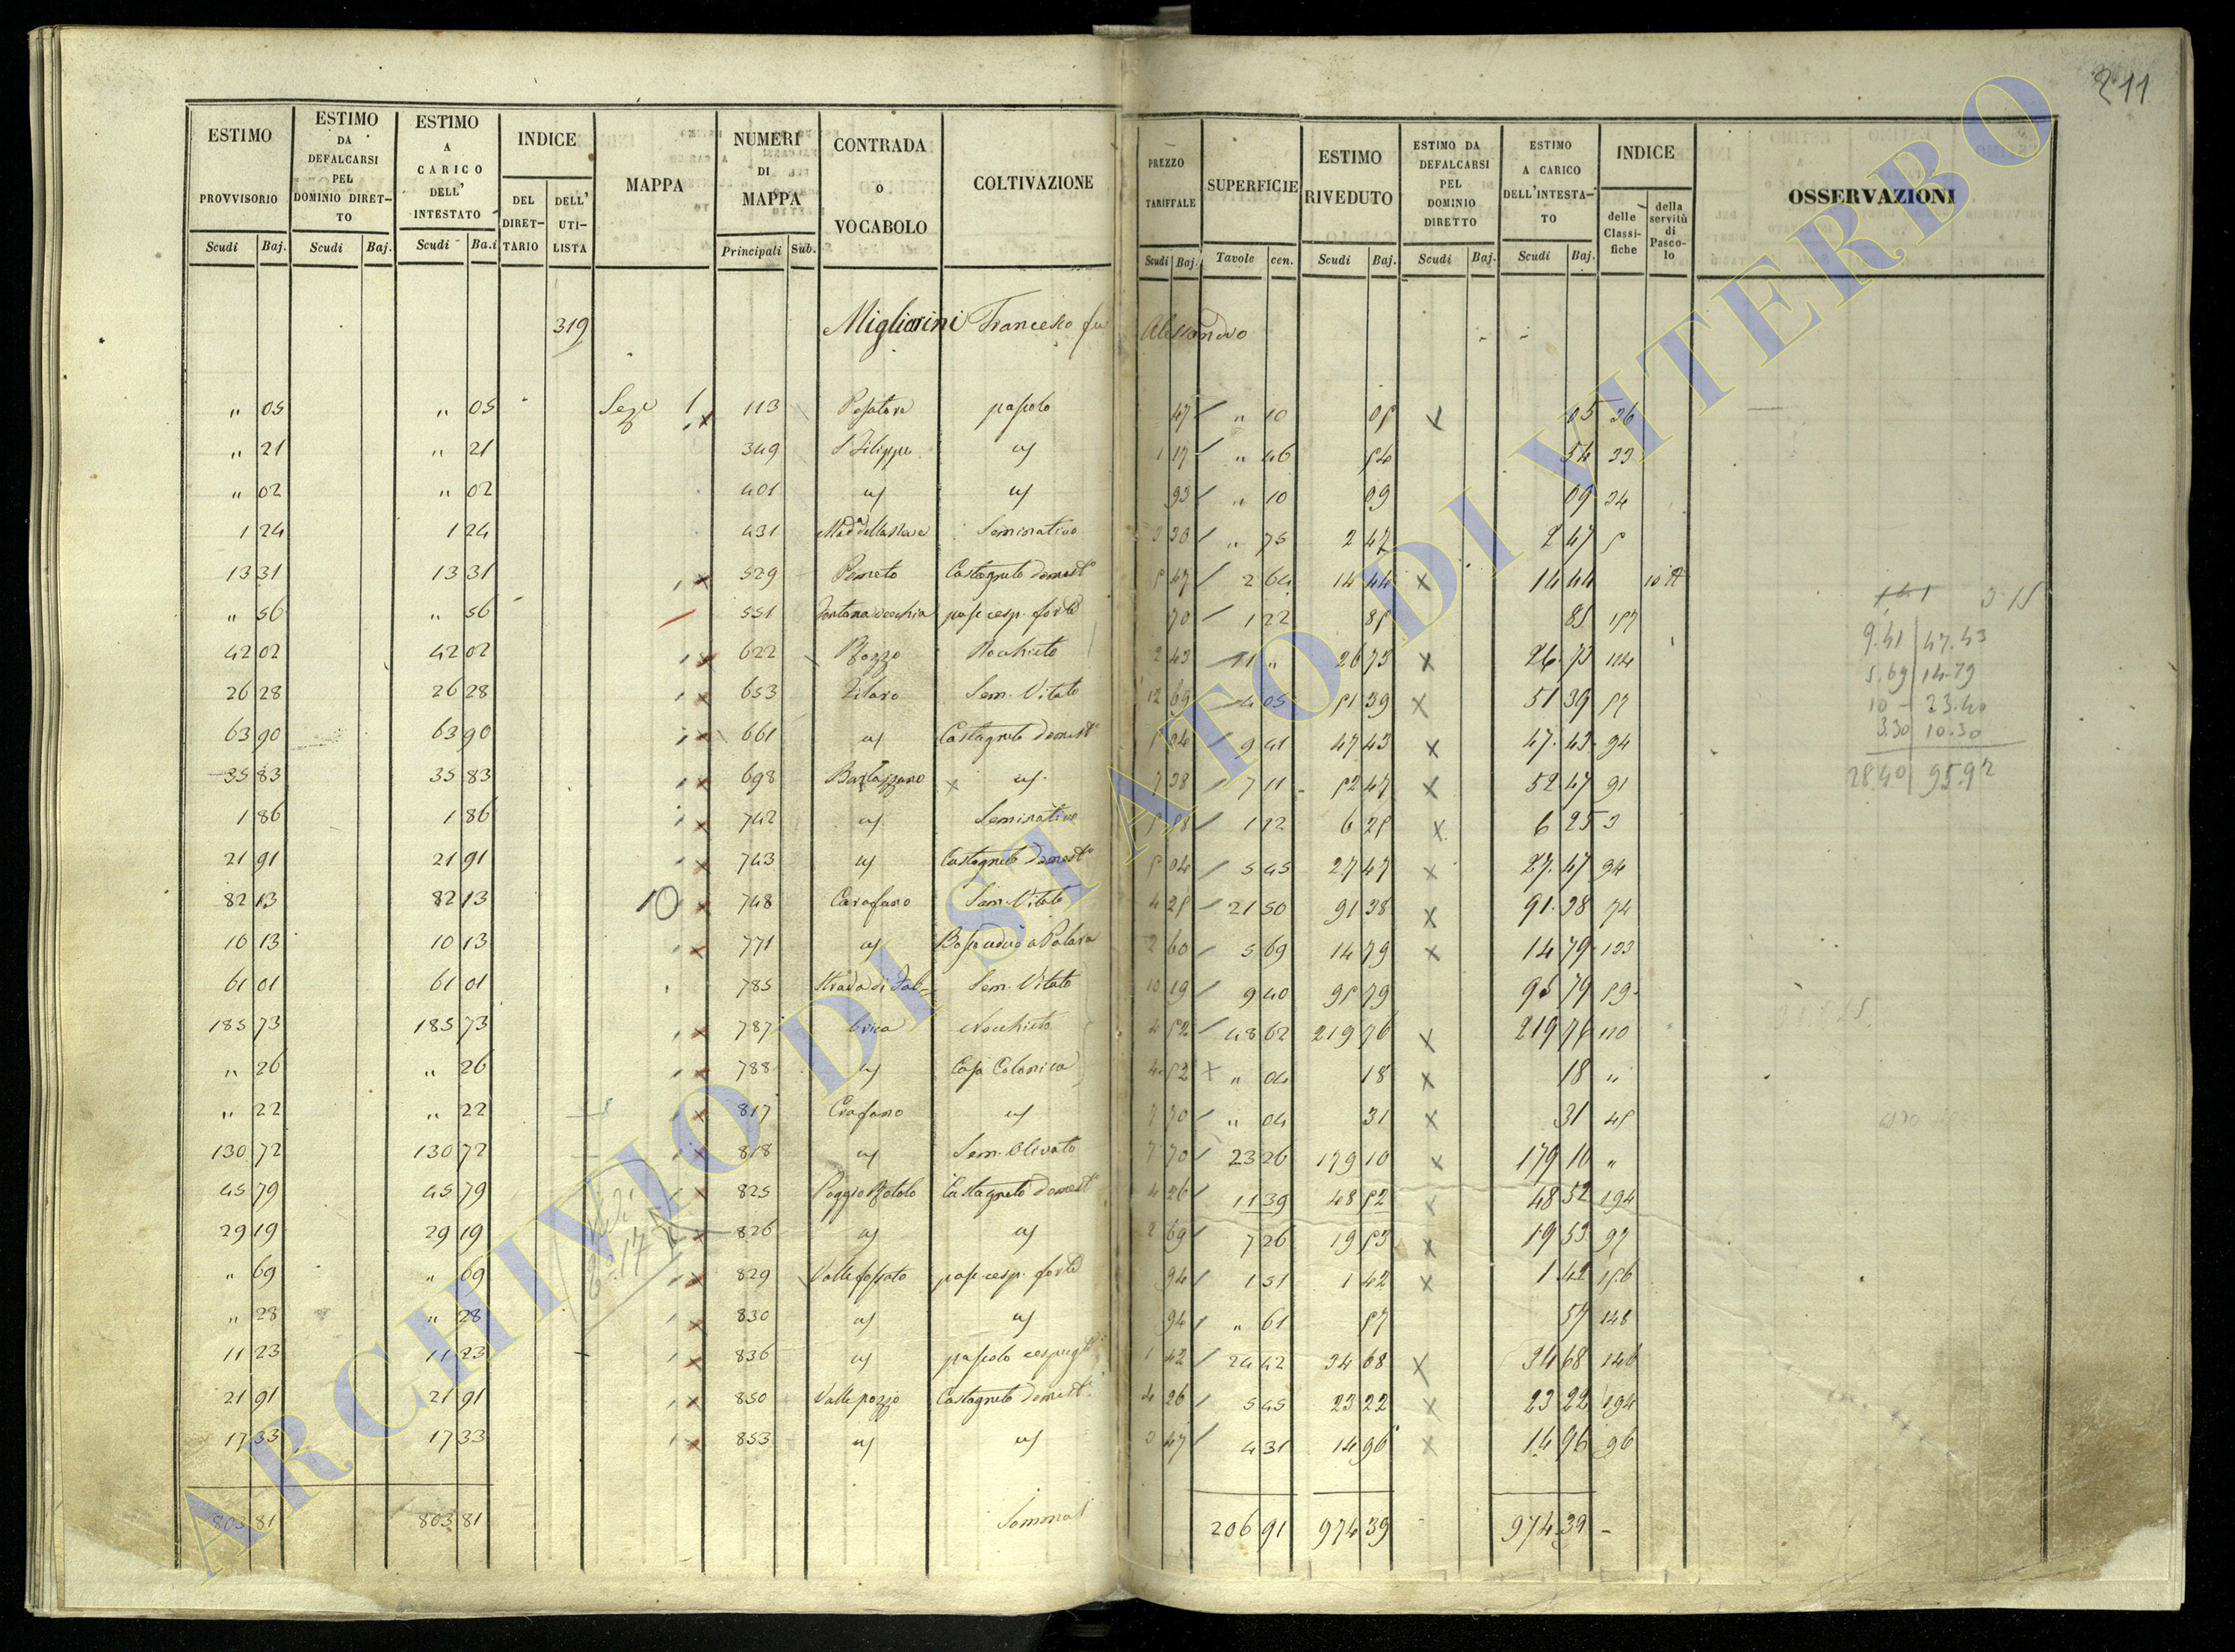 211
ESTIMO PROVVISORIO Scudi Baj.
ESTIMO DA DEFALCARSI PEL DOMINIO DIRETTO Scudi Baj.
ESTIMO A CARICO DELL' INTESTATO Scudi Ba.i
INDICE DEL DIRETTARIO DELL' UTILISTA
MAPPA
NUMERI DI MAPPA Principali Sub.
CONTRADA O VOCABOLO
COLTIVAZIONE
PREZZO TARIFFALE Scudi Baj.
SUPERFICIE Tavole cen.
ESTIMO RIVEDUTO Scudi Baj.
ESTIMO DA DEFALCARSI PEL DOMINIO DIRETTO Scudi Baj.
ESTIMO A CARICO DELL'INTESTATO Scudi Baj.
INDICE delle Classifiche della servitù di Pascolo
OSSERVAZIONI
319 Migliorini Francesco fu Alessandro
" 05 " 05 1 113 pascolo 47 " 10 05 05 36
" 21 " 21 349 S Filippo 1 17 " 46 54 54 33
" 02 " 02 401 93 " 10 09 09 34
1 24 1 24 431 Seminativo 3 30 " 75 2 47 2 47 5
13 31 13 31 529 Castagneto domest 5 47 2 64 14 44 14 44
" 56 " 56 551 Fontana vecchia pasc cesp. forte 70 1 22 85 85 157
42 02 42 02 622 Pozzo Nocchieto 2 43 11 " 26 73 26 73 114
26 28 26 28 653 Sem. Vitato 12 69 4 05 51 39 51 39 57
63 90 63 90 661 Castagneto domest 5 04 9 41 47 43 47 43 94
35 83 35 83 698 7 38 7 11 52 47 52 47 91
1 86 1 86 742 Seminativo 5 58 1 12 6 25 6 25 3
21 91 21 91 743 Castagneto domest 5 04 5 45 27 47 27 47 94
82 13 82 13 10 748 Carafano Sem. Vitato 4 25 21 50 91 38 91 38 74
10 13 10 13 771 2 60 5 69 14 79 14 79 133
61 01 61 01 785 Strada di Sem. Vitato 10 19 9 40 95 79 95 79 59
185 73 185 73 787 Nocchieto 4 52 48 62 219 76 219 76 110
" 26 " 26 788 Casa Colonica 4 52 " 04 18 18 "
" 22 " 22 817 Crafano 7 70 " 04 31 31 45
130 72 130 72 818 Sem. Olivato 7 70 23 26 179 10 179 10 "
45 79 45 79 825 Castagneto domest 4 26 11 39 48 52 48 52 194
29 19 29 19 826 2 69 7 26 19 53 19 53 97
" 69 " 69 829 Valle fossato pasc. cesp. forte 94 1 51 1 42 1 42 156
" 28 " 28 830 94 " 61 57 57 148
11 23 11 23 836 pascolo cespugl 1 42 24 42 34 68 34 68 146
21 91 21 91 850 Valle pozzo Castagneto domest 4 26 5 45 23 22 23 22 194
17 33 17 33 853 3 47 4 31 14 96 14 96 96
803 81 803 81 Somma 206 91 974 39 974 39
9.41 47.43
5.69 14.79
10 - 23.40
3.30 10.30
28.40 95.92
ARCHIVIO DI STATO DI VITERBO